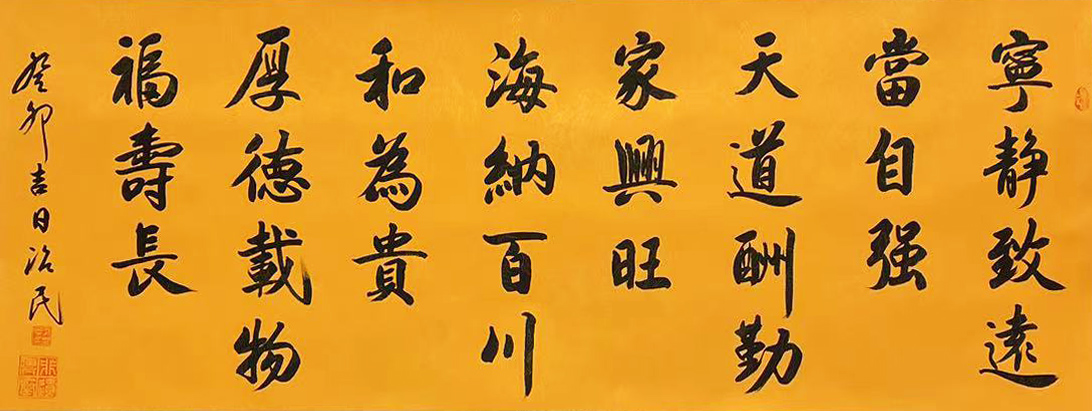 寧静致遠
當自强
天道酬勤
家興旺
海納百川
和為貴
厚德載物
福壽長
癸卯吉日治民